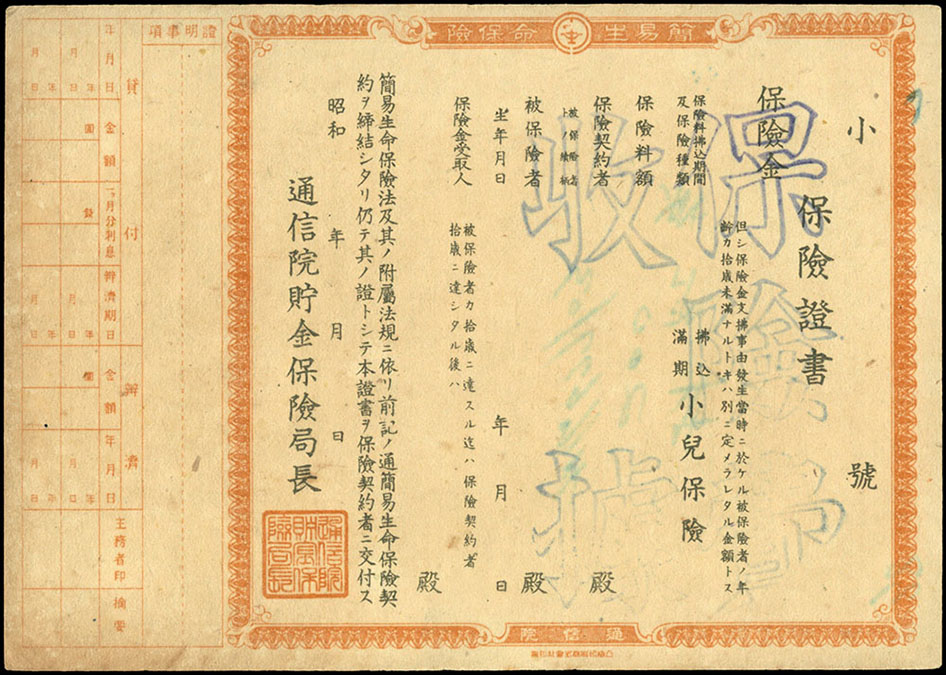 簡易生命保險
小 號
保險證書
保險金
但シ保險金支拂事由發生當時ニ於ケル被保險者ノ年
齡カ拾歲未滿ナルトキハ別ニ定メラレタル金額トス
保險料拂込期間
及保險種類
拂込
滿期
小兒保險
保險料額
保險契約者 殿
被保險者
トノ續柄
被保險者 殿
生年月日 年 月 日
保險金受取人
被保險者カ拾歲ニ達スル迄ハ保險契約者
拾歲ニ達シタル後ハ
殿
簡易生命保險法及其ノ附屬法規ニ依リ前記ノ通簡易生命保險契
約ヲ締結シタリ仍テ其ノ證トシテ本證書ヲ保險契約者ニ交付ス
昭和 年 月 日
通信院貯金保險局長
通信院
證明事項
貸付
年月日
金額
一ヶ月分利息
辨濟期日
辨濟
金額
年月日
主務者印
摘要
年 月 日
年 月 日
圓
年 月 日
年 月 日
年 月 日
年 月 日
保險
收